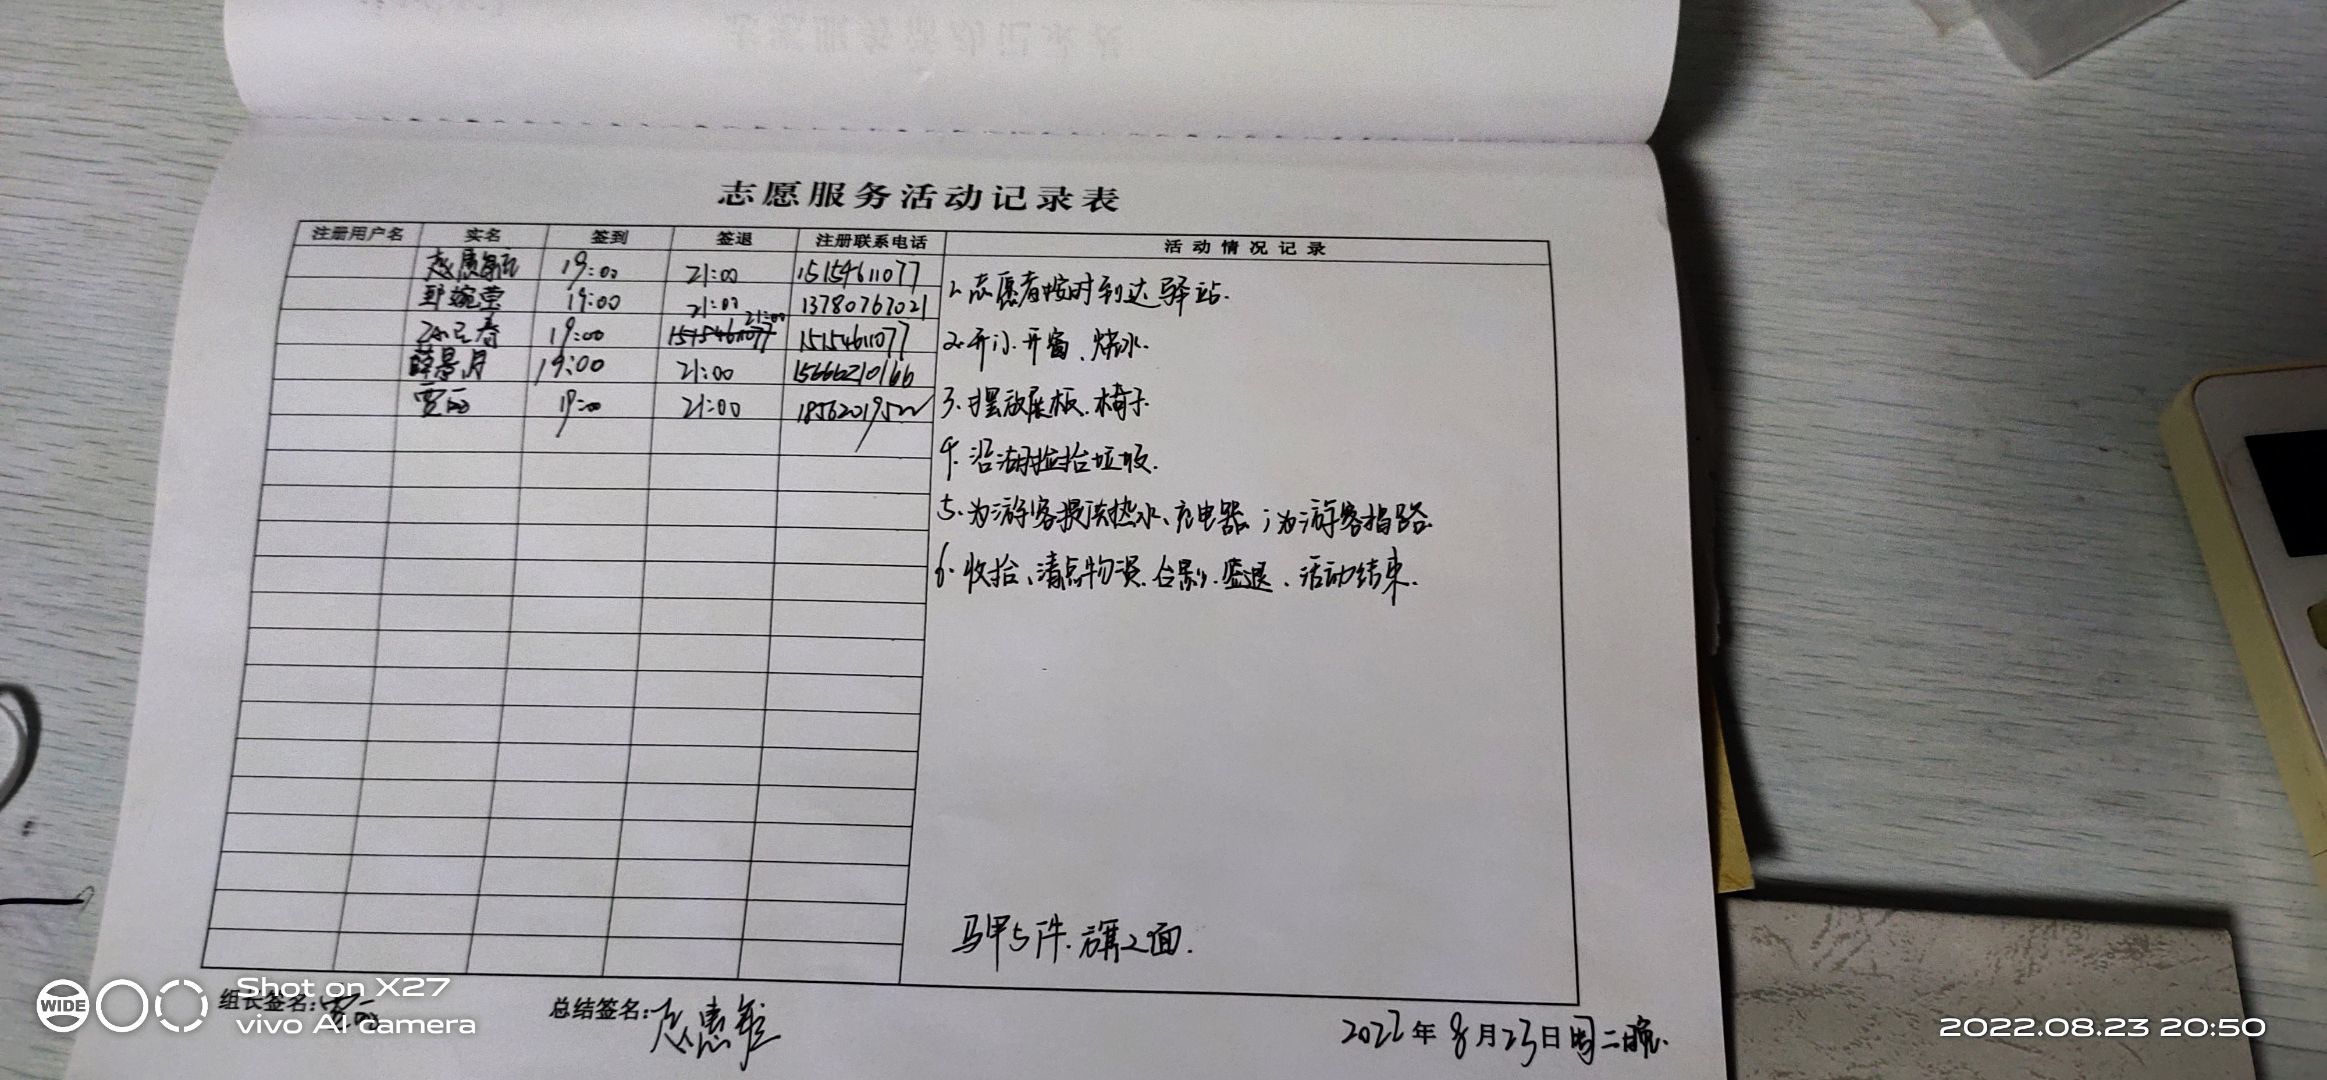 志愿服务活动记录表
注册用户名 实名 签到 签退 注册联系电话 活动情况记录
19:00 21:00 15154611077
郭婉莹 19:00 21:00 13780767021
19:00 21:00 15154611077
薛景月 19:00 21:00 15666210166
贾 19:00 21:00
1. 志愿者按时到达驿站.
2. 开门、开窗、烧水.
3. 摆放展板、椅子
4. 沿湖捡拾垃圾.
5. 为游客提供热水、充电器;为游客指路.
6. 收拾、清点物资、合影、签退、活动结束.
马甲5件.旗2面.
组长签名:贾
总结签名:赵惠
2022年8月23日周二晚.
WIDE
Shot on X27
vivo AI camera
2022.08.23 20:50